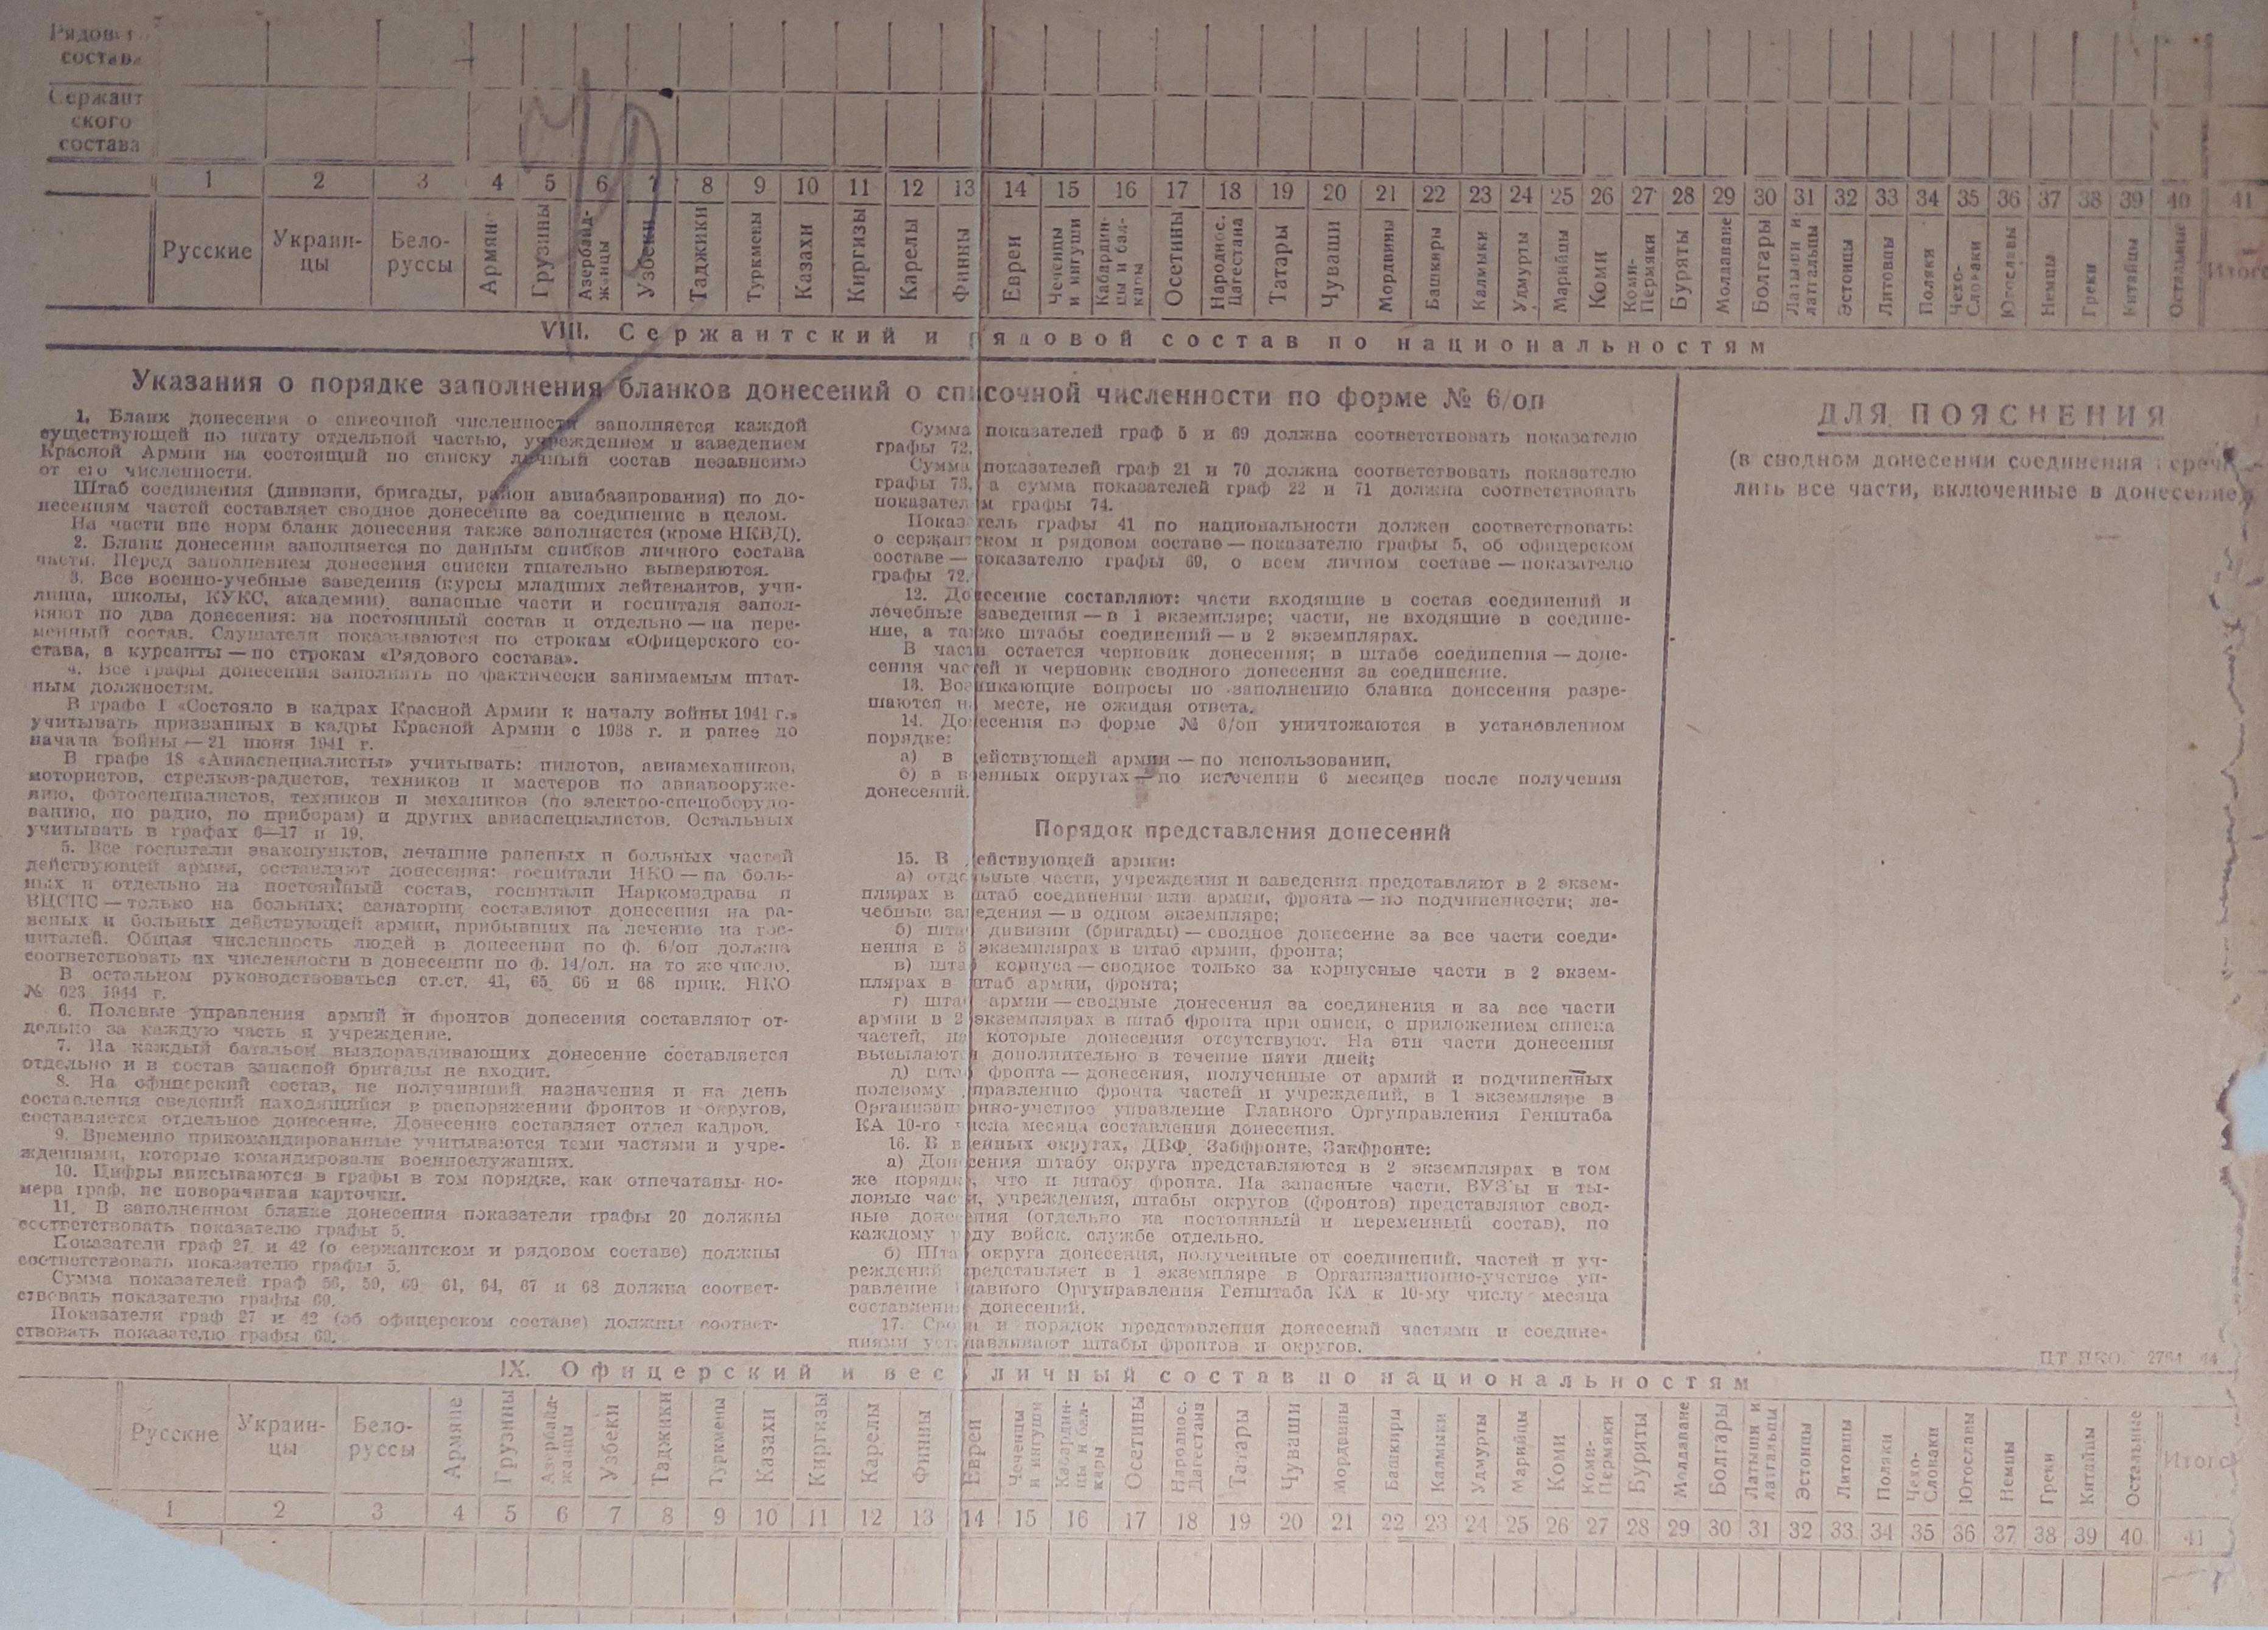 Рядового
состава
Сержант
ского
состава
1 2 3 4 5 6 7 8 9 10 11 12 13 14 15 16 17 18 19 20 21 22 23 24 25 26 27 28 29 30 31 32 33 34 35 36 37 38 39 40 41
Русские
Украин-
цы
Бело-
руссы
Армяне
Грузины
Азербайд-
жанцы
Узбеки
Таджики
Туркмены
Казахи
Киргизы
Карелы
Финны
Евреи
Чеченцы
и ингуши
Кабардин-
цы и бал-
кары
Осетины
Народнос.
Дагестана
Татары
Чуваши
Мордвины
Башкиры
Калмыки
Удмурты
Марийцы
Коми
Коми-
Пермяки
Буряты
Молдаване
Болгары
Латыши и
латгальцы
Эстонцы
Литовцы
Поляки
Чехо-
Словаки
Югославы
Немцы
Греки
Китайцы
Остальные
Итого
VIII. Сержантский и рядовой состав по национальностям
Указания о порядке заполнения бланков донесений о списочной численности по форме № 6/оп
1. Бланк донесения о списочной численности заполняется каждой
существующей по штату отдельной частью, учреждением и заведением
Красной Армии на состоящий по списку личный состав независимо
от его численности.
Штаб соединения (дивизии, бригады, район авиабазирования) по до-
несениям частей составляет сводное донесение за соединение в целом.
На части вне норм бланк донесения также заполняется (кроме НКВД).
2. Бланк донесения заполняется по данным списков личного состава
части. Перед заполнением донесения списки тщательно выверяются.
3. Все военно-учебные заведения (курсы младших лейтенантов, учи-
лища, школы, КУКС, академии) запасные части и госпиталя запол-
няют по два донесения: на постоянный состав и отдельно — на пере-
менный состав. Слушатели показываются по строкам «Офицерского со-
става, а курсанты — по строкам «Рядового состава».
4. Все графы донесения заполнять по фактически занимаемым штат-
ным должностям.
В графе I «Состояло в кадрах Красной Армии к началу войны 1941 г.»
учитывать призванных в кадры Красной Армии с 1938 г. и ранее до
начала войны — 21 июня 1941 г.
В графе 18 «Авиаспециалисты» учитывать: пилотов, авиамехаников,
мотористов, стрелков-радистов, техников и мастеров по авиавооруже-
нию, фотоспециалистов, техников и механиков (по электро-спецоборудо-
ванию, по радио, по приборам) и других авиаспециалистов. Остальных
учитывать в графах 6—17 и 19.
5. Все госпитали эвакопунктов, лечащие раненых и больных частей
действующей армии, составляют донесения: госпитали НКО — на боль-
ных и отдельно на постоянный состав, госпитали Наркомздрава и
ВЦСПС — только на больных; санатории составляют донесения на ра-
неных и больных действующей армии, прибывших на лечение из гос-
питалей. Общая численность людей в донесении по ф. 6/оп должна
соответствовать их численности в донесении по ф. 14/оп. на то же число.
В остальном руководствоваться ст.ст. 41, 65, 66 и 68 прик. НКО
№ 023 1944 г.
6. Полевые управления армий и фронтов донесения составляют от-
дельно за каждую часть и учреждение.
7. На каждый батальон выздоравливающих донесение составляется
отдельно и в состав запасной бригады не входит.
8. На офицерский состав, не получивший назначения и на день
составления сведений находящийся в распоряжении фронтов и округов,
составляется отдельное донесение. Донесение составляет отдел кадров.
9. Временно прикомандированные учитываются теми частями и учре-
ждениями, которые командировали военнослужащих.
10. Цифры вписываются в графы в том порядке, как отпечатаны но-
мера граф, не поворачивая карточки.
11. В заполненном бланке донесения показатели графы 20 должны
соответствовать показателю графы 5.
Показатели граф 27 и 42 (о сержантском и рядовом составе) должны
соответствовать показателю графы 5.
Сумма показателей граф 56, 59, 60 61, 64, 67 и 68 должна соответ-
ствовать показателю графы 69.
Показатели граф 27 и 42 (об офицерском составе) должны соответ-
ствовать показателю графы 69.
Сумма показателей граф 5 и 69 должна соответствовать показателю
графы 72.
Сумма показателей граф 21 и 70 должна соответствовать показателю
графы 73, а сумма показателей граф 22 и 71 должна соответствовать
показателям графы 74.
Показатель графы 41 по национальности должен соответствовать:
о сержантском и рядовом составе — показателю графы 5, об офицерском
составе — показателю графы 69, о всем личном составе — показателю
графы 72.
12. Донесение составляют: части входящие в состав соединений и
лечебные заведения — в 1 экземпляре; части, не входящие в соедине-
ние, а также штабы соединений — в 2 экземплярах.
В части остается черновик донесения; в штабе соединения — доне-
сения частей и черновик сводного донесения за соединение.
13. Возникающие вопросы по заполнению бланка донесения разре-
шаются на месте, не ожидая ответа.
14. Донесения по форме № 6/оп уничтожаются в установленном
порядке:
а) в действующей армии — по использовании,
б) в военных округах — по истечении 6 месяцев после получения
донесений.
Порядок представления донесений
15. В действующей армии:
а) отдельные части, учреждения и заведения представляют в 2 экзем-
плярах в штаб соединения или армии, фронта — по подчиненности; ле-
чебные заведения — в одном экземпляре;
б) штаб дивизии (бригады) — сводное донесение за все части соеди-
нения в 3 экземплярах в штаб армии, фронта;
в) штаб корпуса — сводное только за корпусные части в 2 экзем-
плярах в штаб армии, фронта;
г) штаб армии — сводные донесения за соединения и за все части
армии в 2 экземплярах в штаб фронта при описи, с приложением списка
частей, на которые донесения отсутствуют. На эти части донесения
высылаются дополнительно в течение пяти дней;
д) штаб фронта — донесения, полученные от армий и подчиненных
полевому управлению фронта частей и учреждений, в 1 экземпляре в
Организационно-учетное управление Главного Оргуправления Генштаба
КА 10-го числа месяца составления донесения.
16. В военных округах, ДВФ, Забфронте, Закфронте:
а) Донесения штабу округа представляются в 2 экземплярах в том
же порядке, что и штабу фронта. На запасные части, ВУЗ'ы и ты-
ловые части, учреждения, штабы округов (фронтов) представляют свод-
ные донесения (отдельно на постоянный и переменный состав), по
каждому роду войск, службе отдельно.
б) Штаб округа донесения, полученные от соединений, частей и уч-
реждений представляет в 1 экземпляре в Организационно-учетное уп-
равление Главного Оргуправления Генштаба КА к 10-му числу месяца
составления донесений.
17. Сроки и порядок представления донесений частями и соедине-
ниями устанавливают штабы фронтов и округов.
ДЛЯ ПОЯСНЕНИЯ
(в сводном донесении соединения перечис-
лить все части, включенные в донесение)
ПТ НКО.
IX. Офицерский и весь личный состав по национальностям
Русские
Украин-
цы
Бело-
руссы
Армяне
Грузины
Азербайд-
жанцы
Узбеки
Таджики
Туркмены
Казахи
Киргизы
Карелы
Финны
Евреи
Чеченцы
и ингуши
Кабардин-
цы и бал-
кары
Осетины
Народнос.
Дагестана
Татары
Чуваши
Мордвины
Башкиры
Калмыки
Удмурты
Марийцы
Коми
Коми-
Пермяки
Буряты
Молдаване
Болгары
Латыши и
латгальцы
Эстонцы
Литовцы
Поляки
Чехо-
Словаки
Югославы
Немцы
Греки
Китайцы
Остальные
Итого
1 2 3 4 5 6 7 8 9 10 11 12 13 14 15 16 17 18 19 20 21 22 23 24 25 26 27 28 29 30 31 32 33 34 35 36 37 38 39 40 41